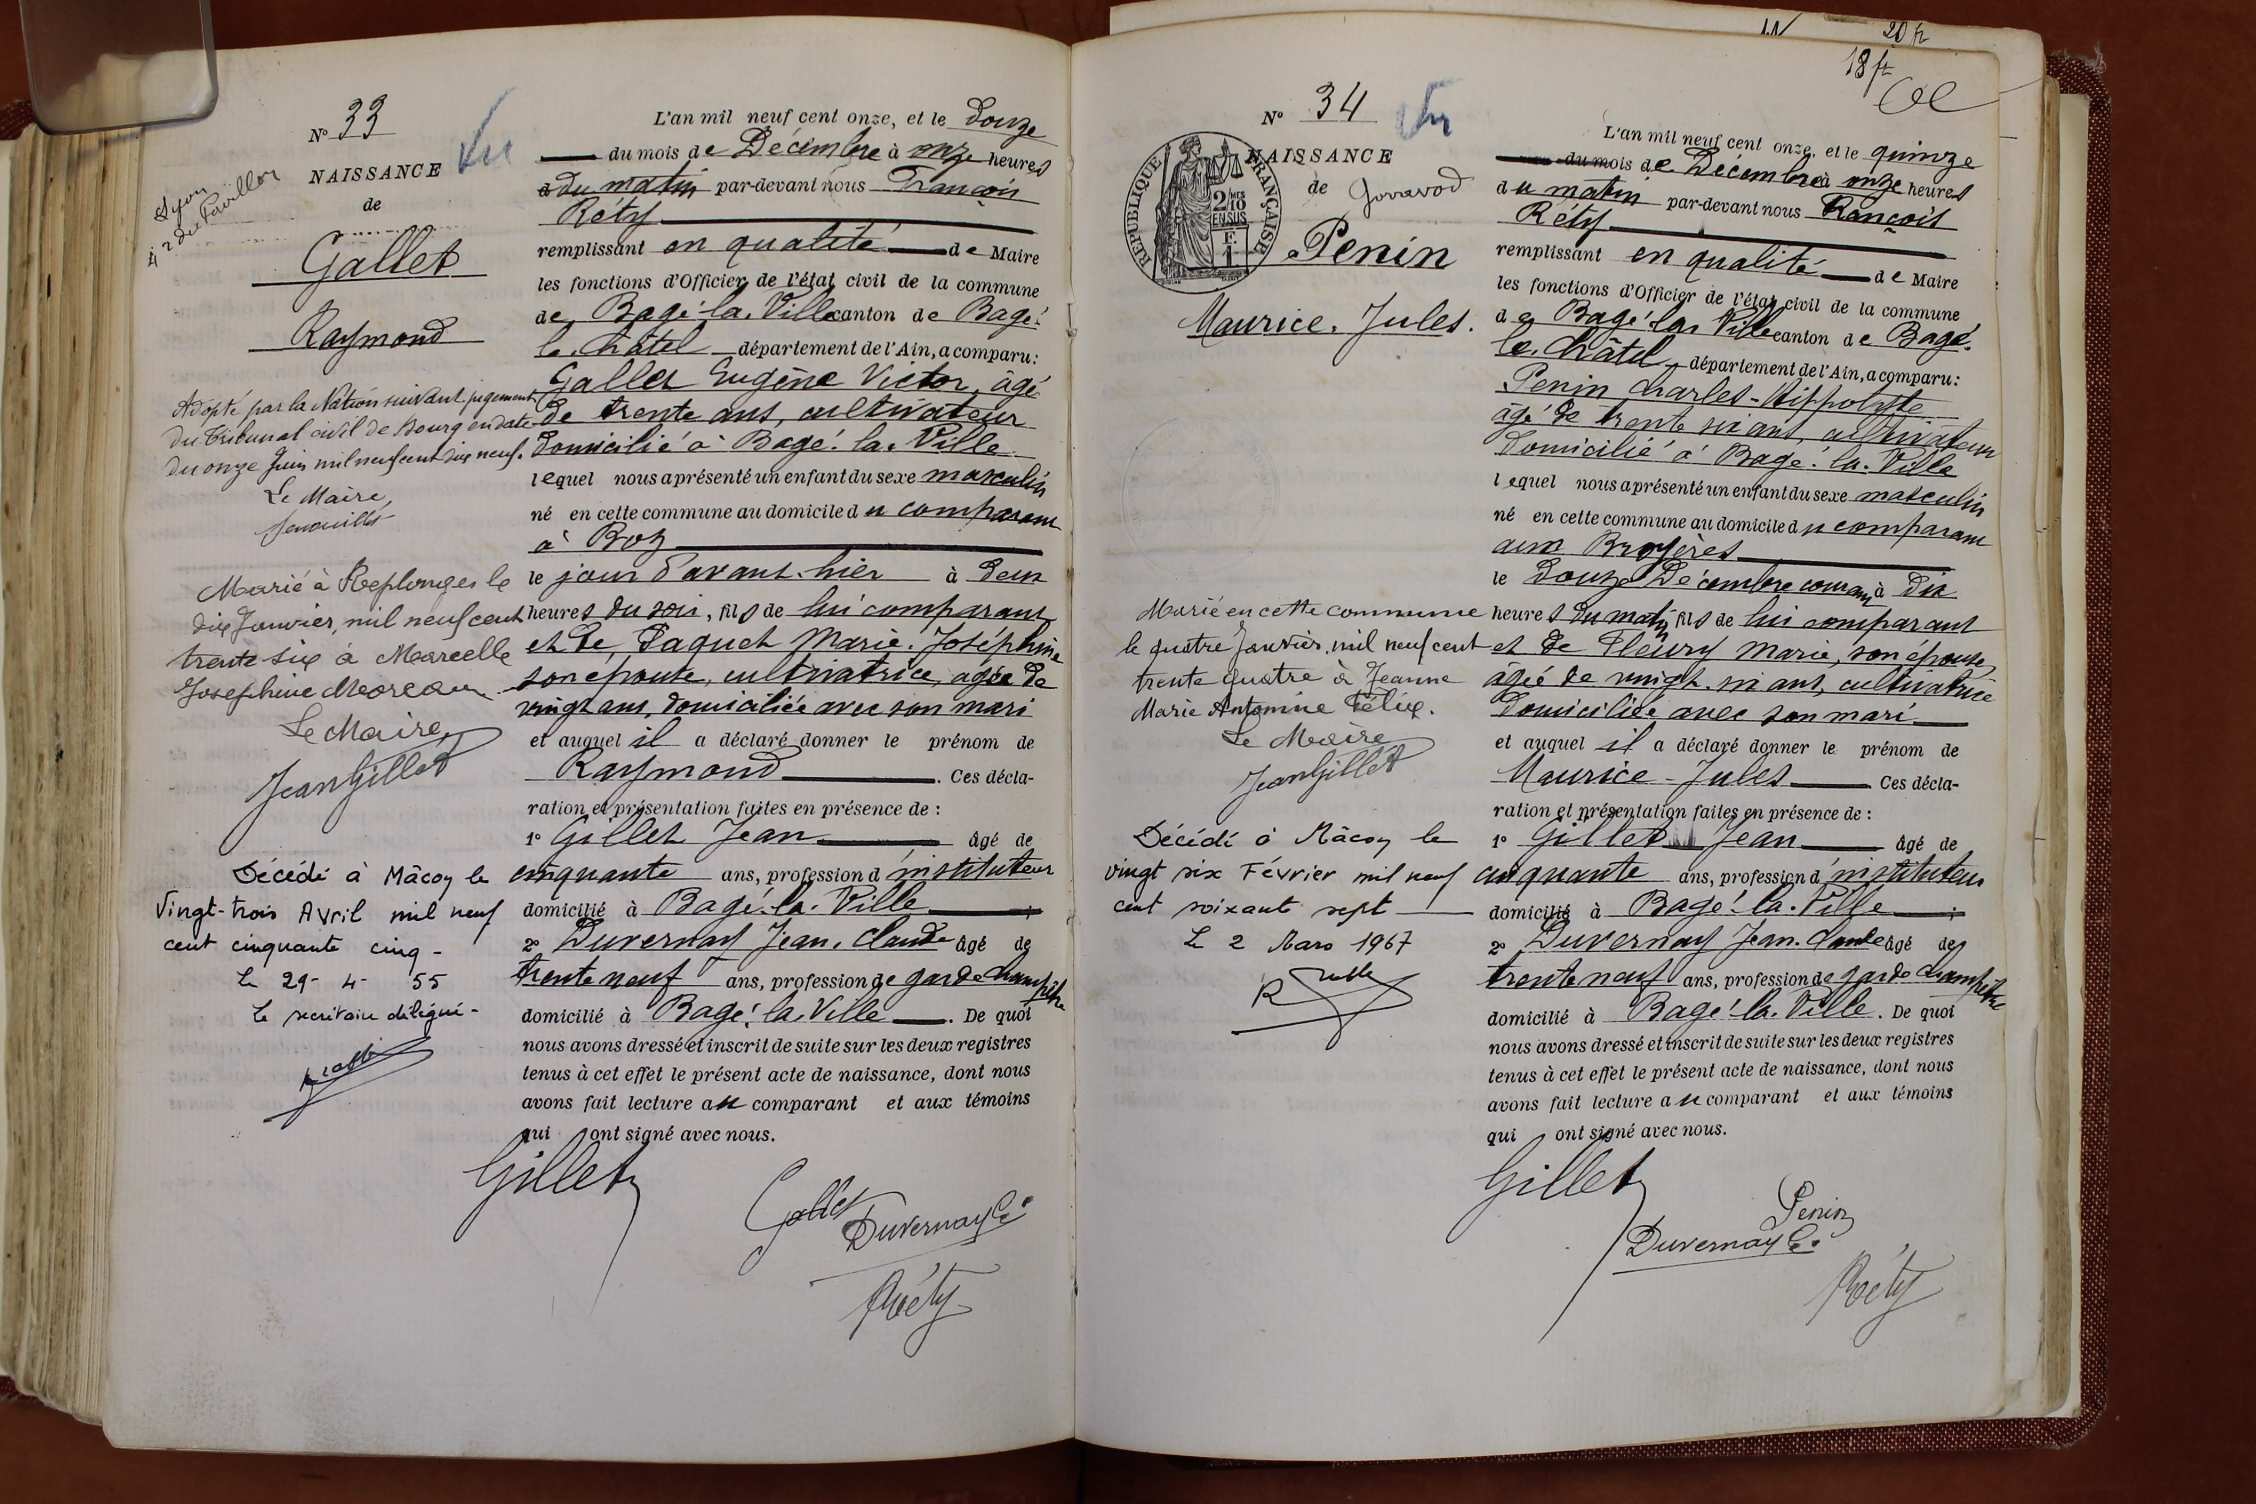 N° 33
NAISSANCE
de
Lyon
Gallet
Raymond
Adopté par la Nation suivant jugement
du Tribunal civil de Bourg en date
du onze Juin mil neuf cent dix neuf.
Le Maire,
Marié à Replonges le
dix Janvier, mil neuf cent
trente-six à Marcelle
Josephine Moreau
Le Maire,
Jean Gillet
Décédé à Mâcon le
Vingt-trois Avril mil neuf
cent cinquante cinq -
Le 29- 4- 55
Le secrétaire délégué -
L'an mil neuf cent onze, et le douze
du mois de Décembre à onze heures
du matin par-devant nous François
Réty
remplissant en qualité de Maire
les fonctions d'Officier de l'état civil de la commune
de Bagé-la-Ville canton de Bagé-
le-Châtel département de l'Ain, a comparu:
Gallet Eugène Victor, âgé
de trente ans, cultivateur
domicilié à Bagé-la-Ville
lequel nous a présenté un enfant du sexe masculin
né en cette commune au domicile du comparant
à Boz
le jour d'avant-hier à deux
heures du soir, fils de lui comparant
et de Paquet Marie-Joséphine
son épouse, cultivatrice, âgée de
vingt ans, domiciliée avec son mari
et auquel il a déclaré donner le prénom de
Raymond. Ces décla-
ration et présentation faites en présence de :
1° Gillet Jean âgé de
cinquante ans, profession d'instituteur
domicilié à Bagé-la-Ville ;
2° Duvernay Jean-Claude âgé de
trente neuf ans, profession de garde champêtre
domicilié à Bagé-la-Ville. De quoi
nous avons dressé et inscrit de suite sur les deux registres
tenus à cet effet le présent acte de naissance, dont nous
avons fait lecture au comparant et aux témoins
qui ont signé avec nous.
Gillet
Gallet
Duvernay Ce
Réty
20 fr
18 fr
N° 34
NAISSANCE
de Gorrevod
RÉPUBLIQUE FRANÇAISE
2/10
EN SUS
Penin
Maurice-Jules.
Marié en cette commune
le quatre Janvier, mil neuf cent
trente quatre à Jeanne
Marie Antonine Félix.
Le Maire
Jean Gillet
Décédé à Mâcon le
vingt six Février mil neuf
cent soixante sept
Le 2 Mars 1967
L'an mil neuf cent onze, et le quinze
du mois de Décembre à onze heures
du matin par-devant nous François
Réty
remplissant en qualité de Maire
les fonctions d'Officier de l'état civil de la commune
de Bagé-la-Ville canton de Bagé-
le-Châtel, département de l'Ain, a comparu:
Penin Charles-Hippolyte
âgé de trente six ans, cultivateur
domicilié à Bagé-la-Ville
lequel nous a présenté un enfant du sexe masculin
né en cette commune au domicile du comparant
aux Bruyères
le douze Décembre courant à dix
heures du matin fils de lui comparant
et de Fleury Marie, son épouse,
âgée de vingt-six ans, cultivatrice
domiciliée avec son mari
et auquel il a déclaré donner le prénom de
Maurice-Jules Ces décla-
ration et présentation faites en présence de :
1° Gillet Jean âgé de
cinquante ans, profession d'instituteur
domicilié à Bagé-la-Ville ;
2° Duvernay Jean-Claude âgé de
trente neuf ans, profession de garde champêtre
domicilié à Bagé-la-Ville. De quoi
nous avons dressé et inscrit de suite sur les deux registres
tenus à cet effet le présent acte de naissance, dont nous
avons fait lecture au comparant et aux témoins
qui ont signé avec nous.
Gillet
Penin
Duvernay Ce
Réty